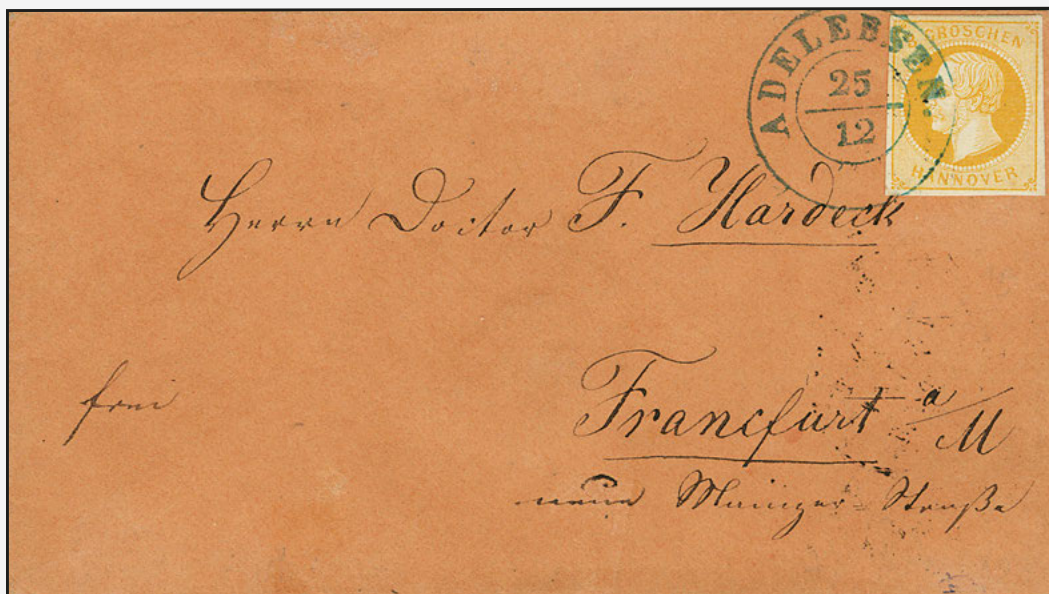 ADELEBSEN.
25
12
GROSCHEN
HANNOVER
Herrn Doctor F. Hardeck
frei
Francfurt a/M
neue Mainzer-Straße